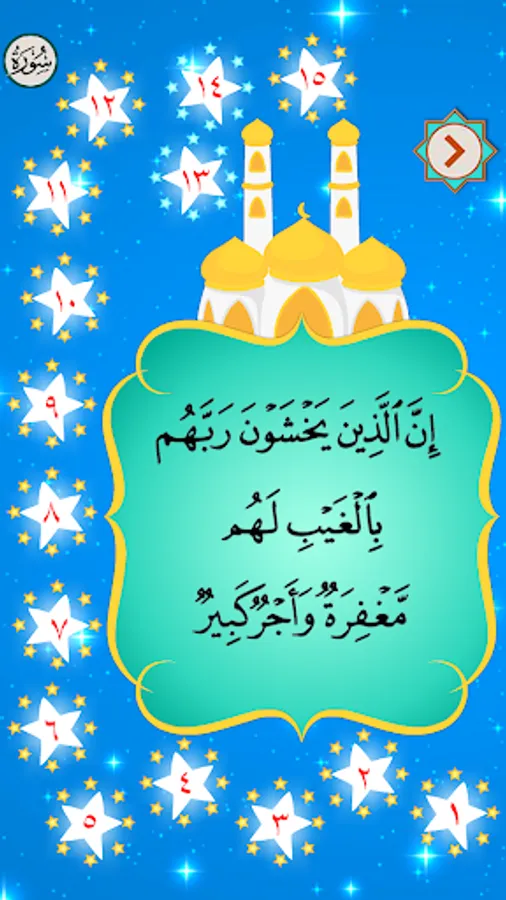 سُورَة
١٥
١٤
١٣
١٢
١١
١٠
٩
٨
٧
٦
٥
٤
٣
٢
١
إِنَّ ٱلَّذِينَ يَخۡشَوۡنَ رَبَّهُم
بِٱلۡغَيۡبِ لَهُم
مَّغۡفِرَةٞ وَأَجۡرٞ كَبِيرٞ